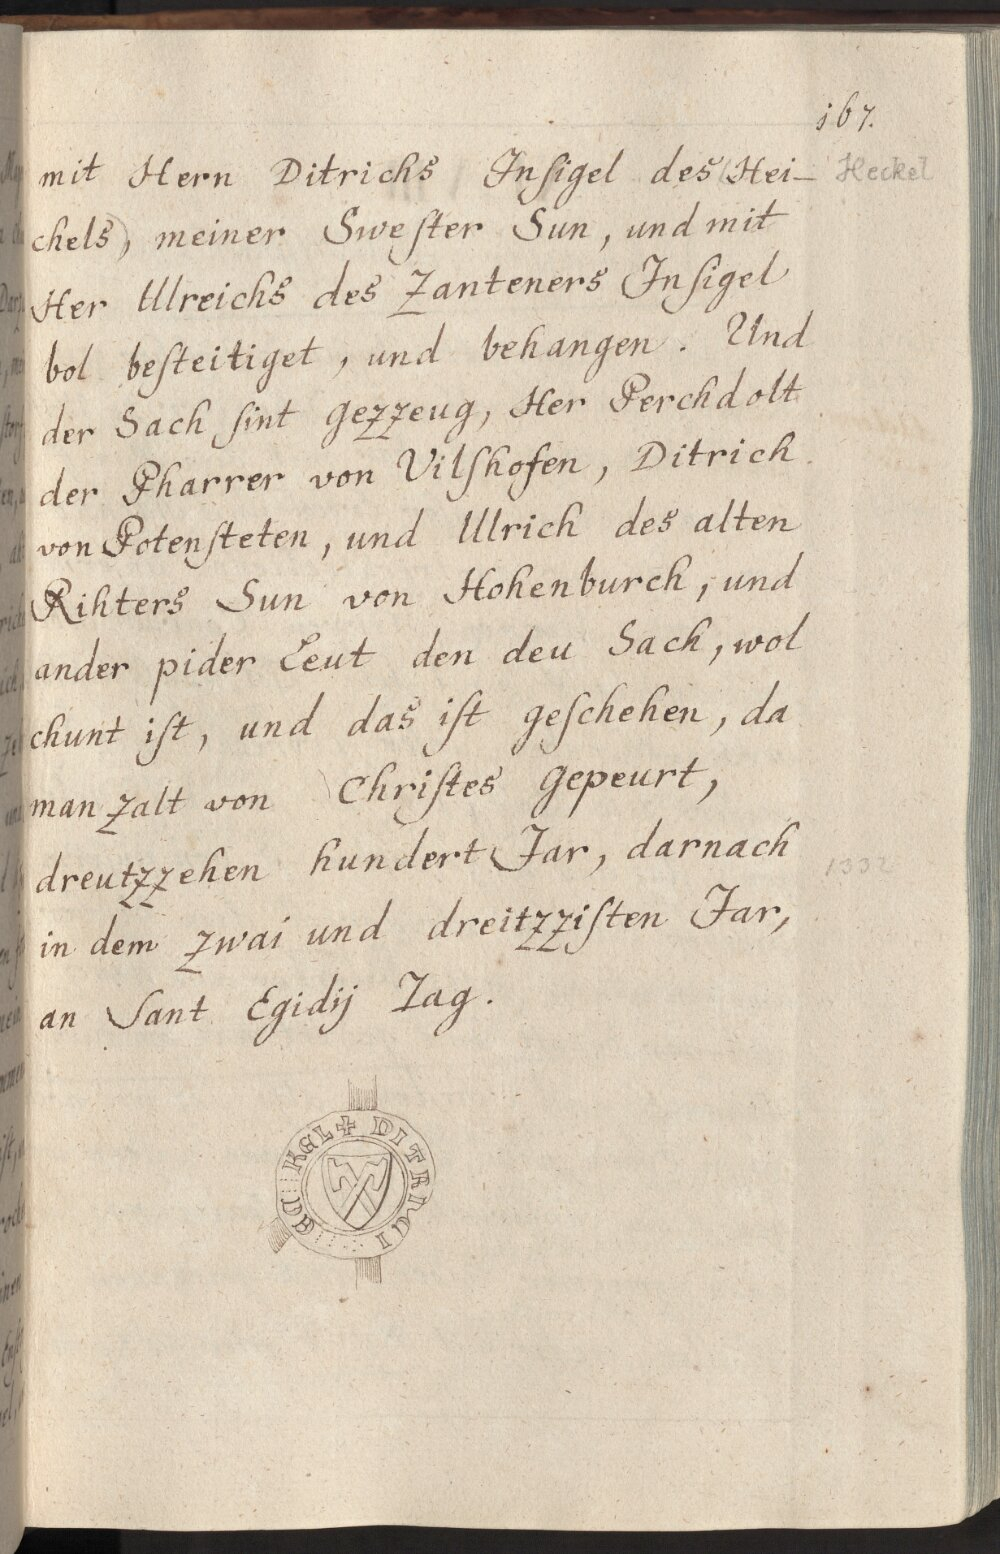 167.
mit Hern Ditrichs Inſigel des (Hei- Heckel
chels), meiner Sweſter Sun, und mit
Her Ulreichs des Zanteners Inſigel
bol beſteitiget, und behangen. Und
der Sach ſint gezzeug, Her Perchdolt
der Pharrer von Vilſhofen, Ditrich
von Potenſteten, und Ulrich des alten
Rihters Sun von Hohenburch, und
ander pider Leut den deu Sach, wol
chunt iſt, und das iſt geſchehen, da
man zalt von Chriſtes gepeurt,
dreutzzehen hundert Jar, darnach 1332
in dem zwai und dreitzziſten Jar,
an Sant Egidij Tag.
✠ DITRICI
KEL